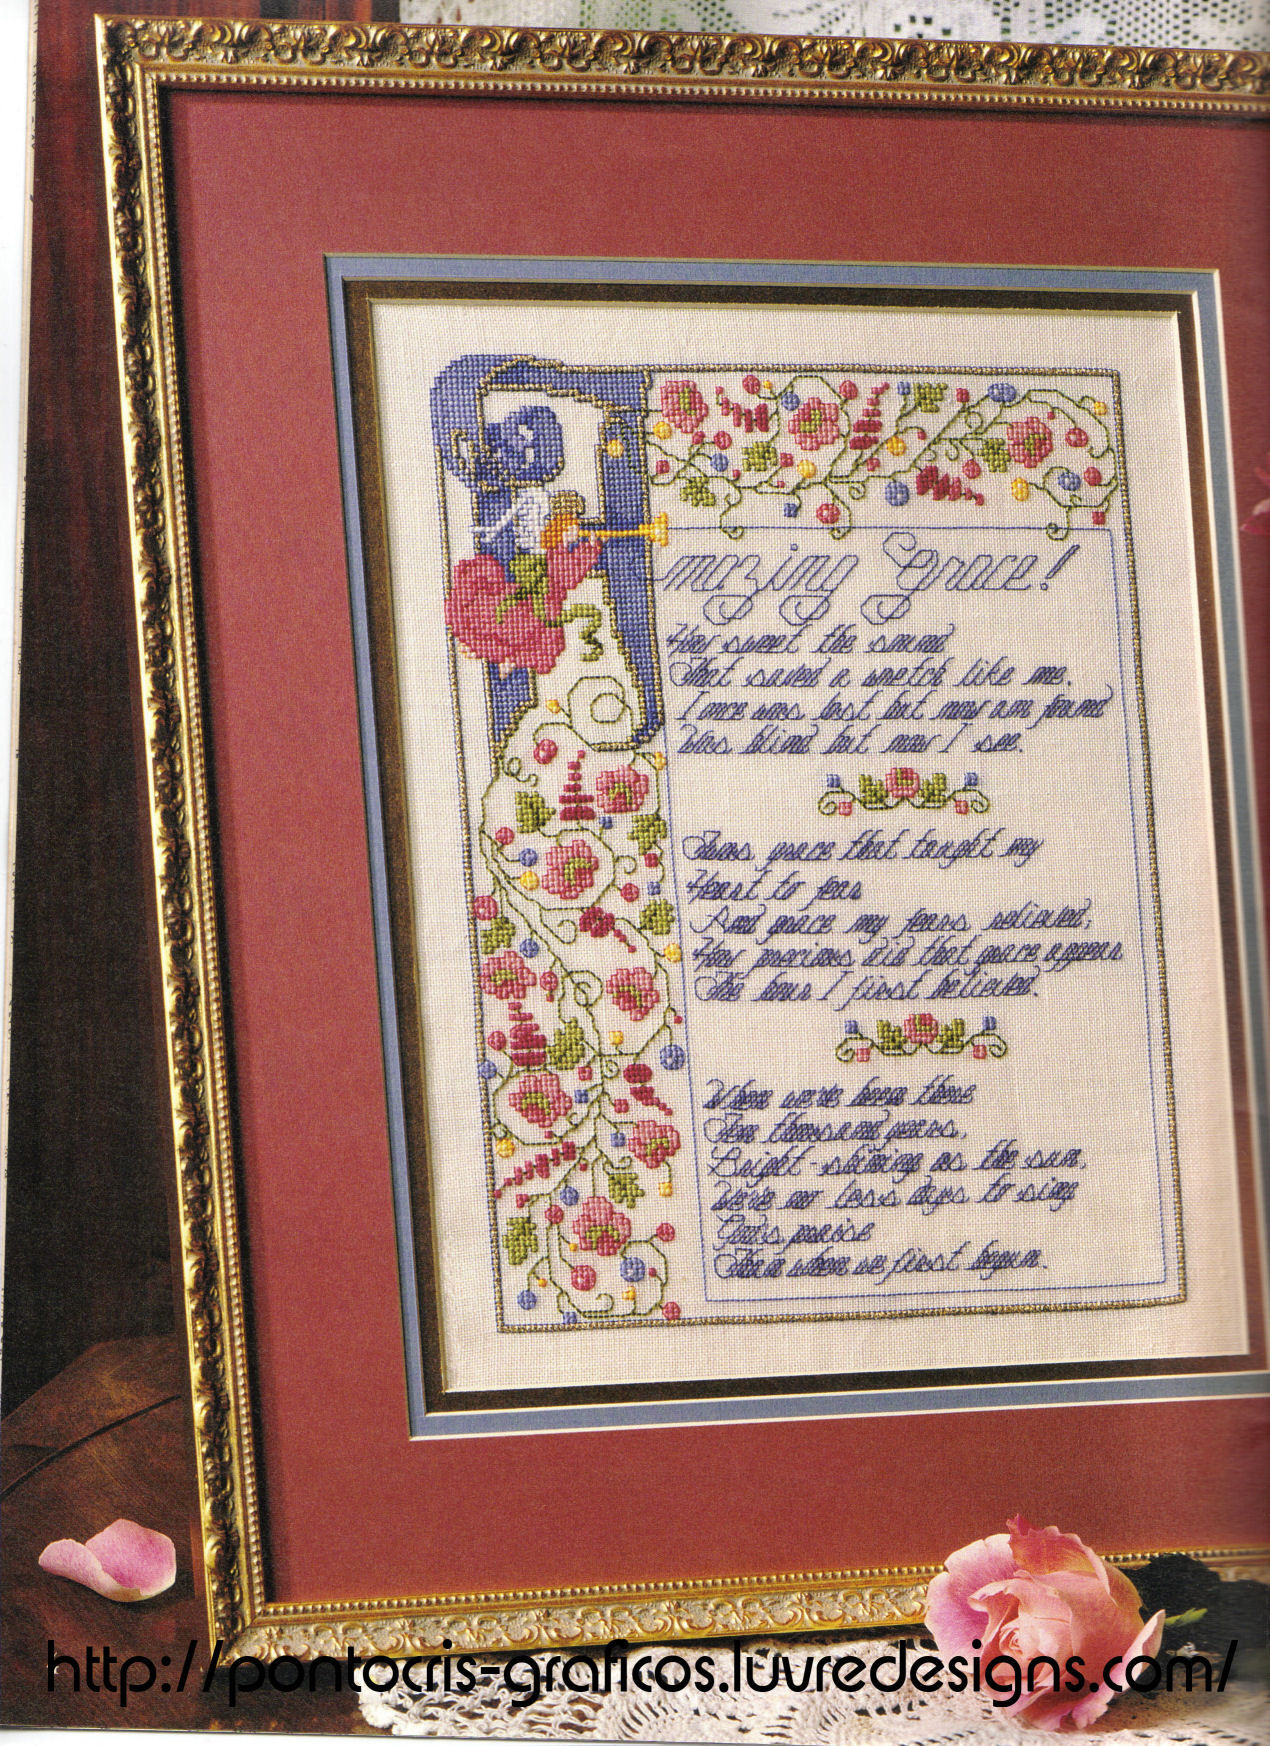 Amazing Grace!
How sweet the sound
That saved a wretch like me.
I once was lost but now am found
Was blind but now I see.
'Twas grace that taught my
Heart to fear
And grace my fears relieved;
How precious did that grace appear
The hour I first believed.
When we've been there
Ten thousand years,
Bright-shining as the sun,
We've no less days to sing
God's praise
Than when we first begun.
http://pontocris-graficos.luvredesigns.com/